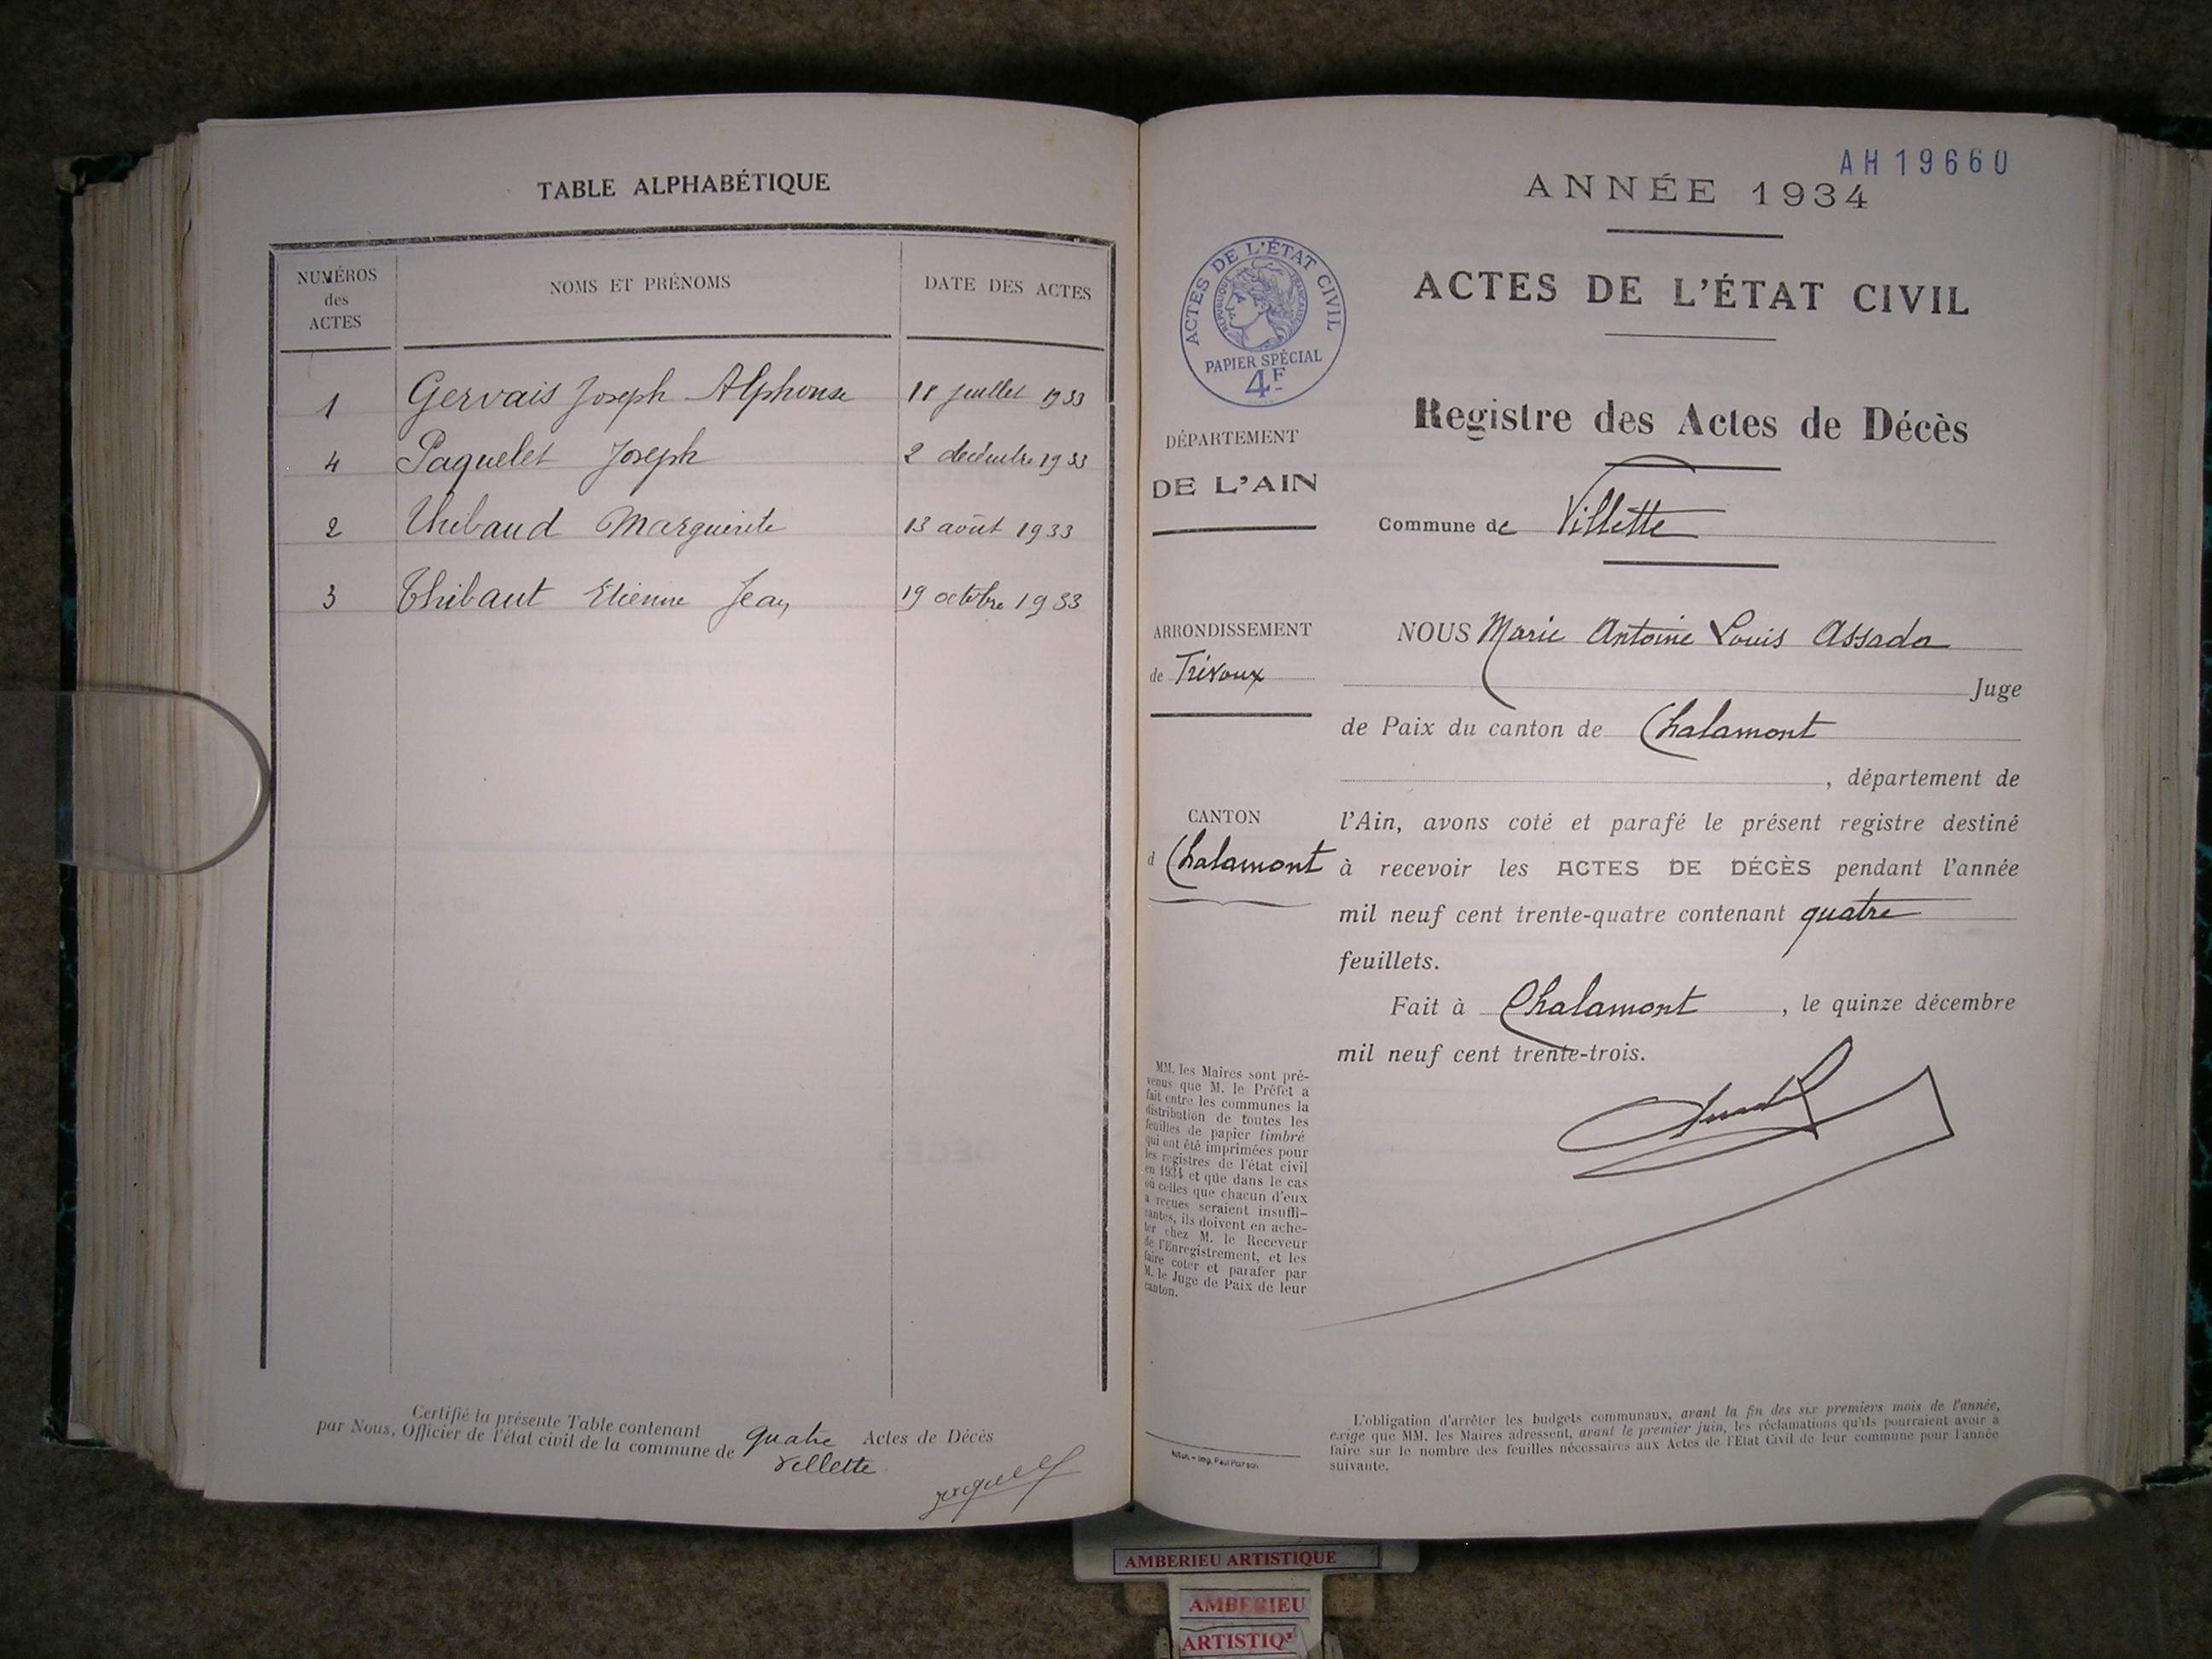 TABLE ALPHABÉTIQUE
NUMÉROS
des
ACTES
NOMS ET PRÉNOMS
DATE DES ACTES
1 Gervais Joseph Alphonse 18 juillet 1933
4 Paquelet Joseph 2 décembre 1933
2 Thibaud Marguerite 13 août 1933
3 Thibaut Etienne Jean 19 octobre 1933
Certifié la présente Table contenant quatre Actes de Décès
par Nous, Officier de l'état civil de la commune de Villette
AH 19660
ANNÉE 1934
ACTES DE L'ÉTAT CIVIL
Registre des Actes de Décès
Commune de Villette
ACTES DE L'ÉTAT CIVIL
RÉPUBLIQUE FRANÇAISE
PAPIER SPÉCIAL
4F
DÉPARTEMENT
DE L'AIN
ARRONDISSEMENT
de Trévoux
CANTON
d Chalamont
NOUS Marie Antoine Louis Assada
Juge
de Paix du canton de Chalamont
, département de
l'Ain, avons coté et parafé le présent registre destiné
à recevoir les ACTES DE DÉCÈS pendant l'année
mil neuf cent trente-quatre contenant quatre
feuillets.
Fait à Chalamont, le quinze décembre
mil neuf cent trente-trois.
MM. les Maires sont pré-
venus que M. le Préfet a
fait entre les communes la
distribution de toutes les
feuilles de papier timbré
qui ont été imprimées pour
les registres de l'état civil
en 1934 et que dans le cas
où celles que chacun d'eux
a reçues seraient insuffi-
santes, ils doivent en ache-
ter chez M. le Receveur
de l'Enregistrement, et les
faire coter et parafer par
M. le Juge de Paix de leur
canton.
L'obligation d'arrêter les budgets communaux, avant la fin des six premiers mois de l'année,
exige que MM. les Maires adressent, avant le premier juin, les réclamations qu'ils pourraient avoir à
faire sur le nombre des feuilles nécessaires aux Actes de l'Etat Civil de leur commune pour l'année
suivante.
Imp. Paul
AMBERIEU ARTISTIQUE
AMBERIEU
ARTISTIQ